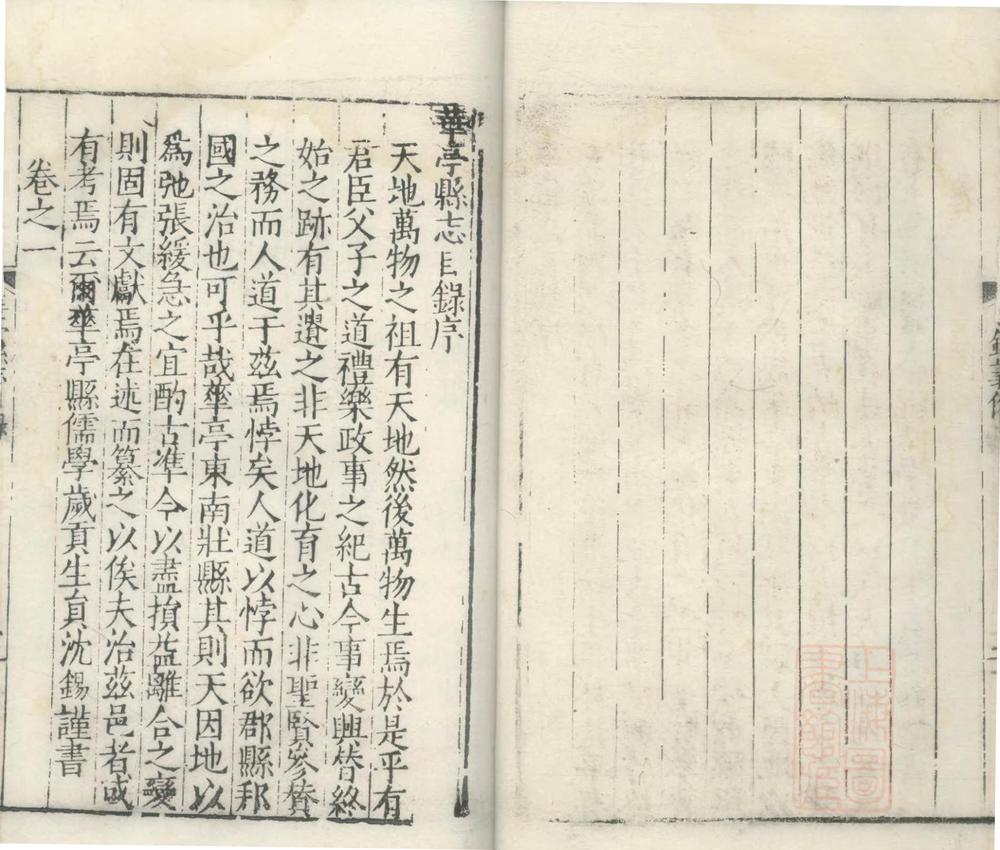 上海圖
書館藏
華亭縣志目錄序
天地萬物之祖有天地然後萬物生焉於是乎有
君臣父子之道禮樂政事之紀古今事變興替終
始之跡有其遺之非天地化育之心非聖賢參贊
之務而人道于茲焉悖矣人道以悖而欲郡縣邦
國之治也可乎哉華亭東南壯縣其則天因地以
為弛張緩急之宜酌古準今以盡損益離合之變
則固有文獻焉在述而纂之以俟夫治茲邑者或
有考焉云爾華亭縣儒學歲貢生員沈錫謹書
卷之一